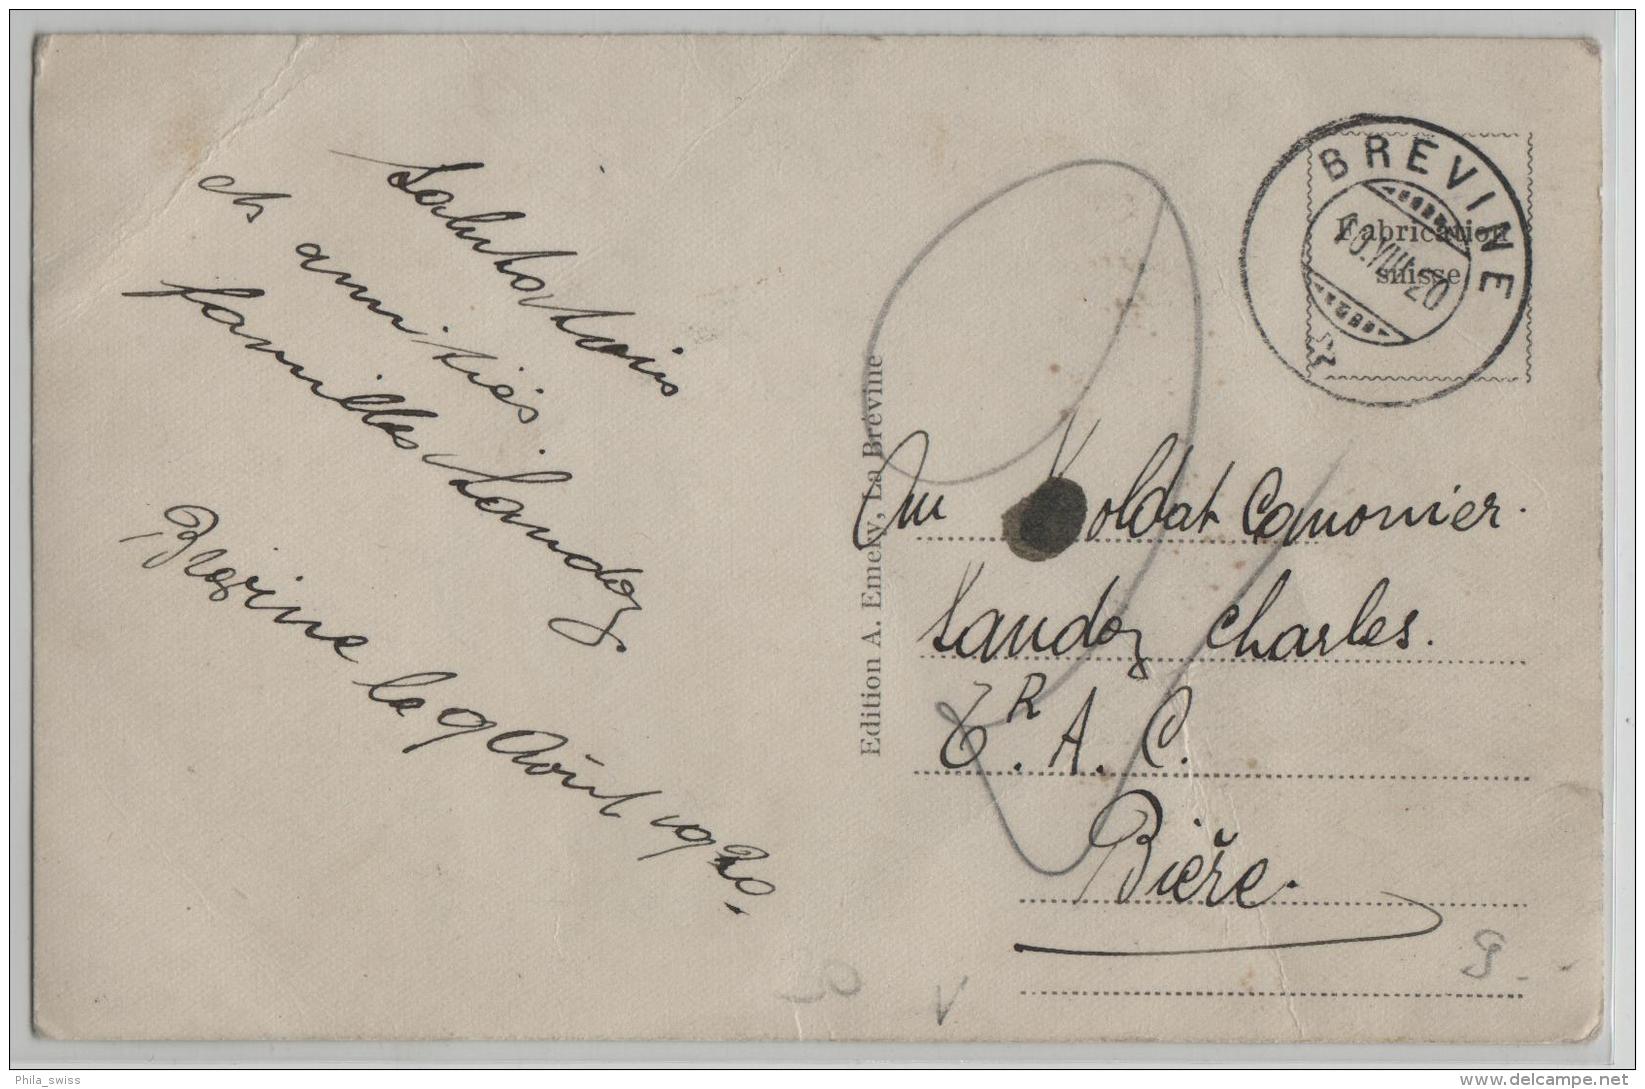 Salutations
et amitiés
familles Sandoz.
Brévine le 9 Août 1920.
Edition A. Emery, La Brévine
BRÉVINE
10.VIII.20
Fabrication
suisse
Au Soldat Canonnier.
Sandoz Charles.
E.R. A. C.
Bière.
9.-
Phila_swiss
delcampe.net